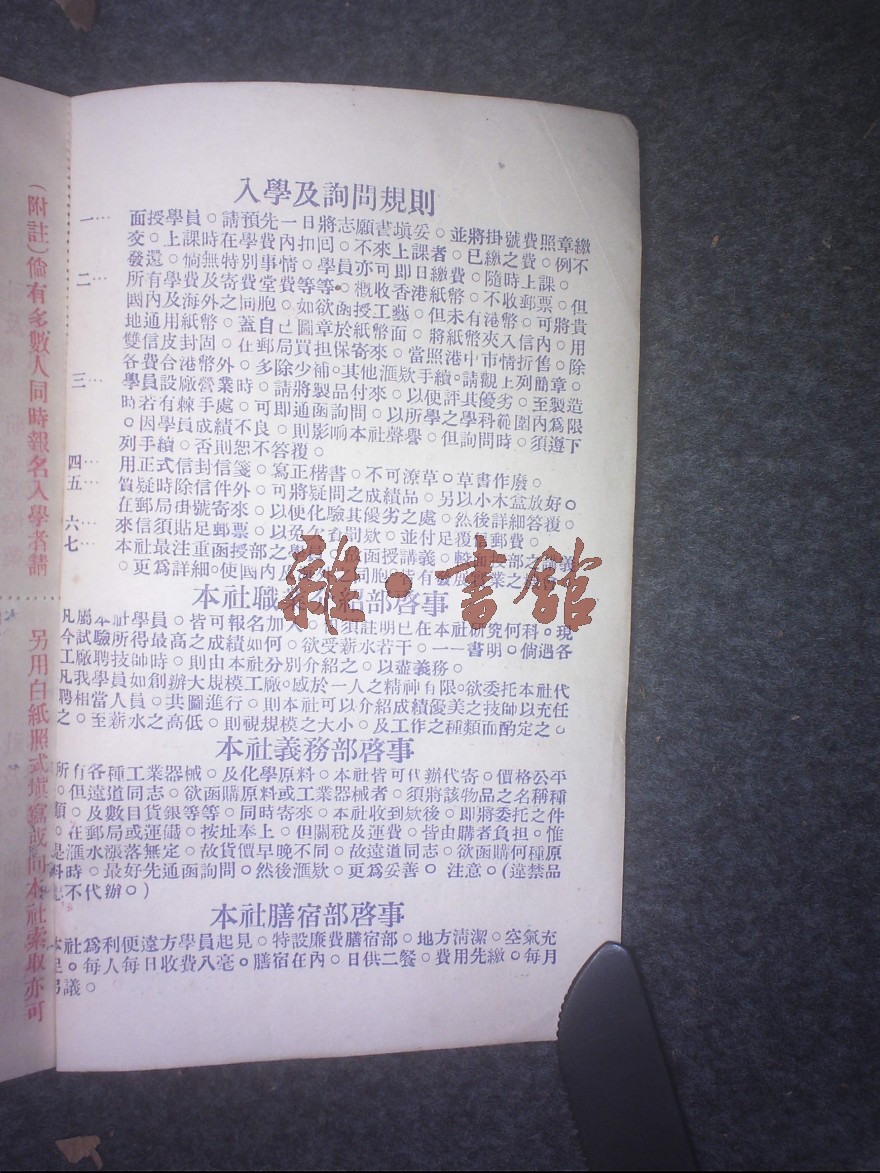 入學及詢問規則
一… 面授學員。請預先一日將志願書塡妥。並將掛號費照章繳
交。上課時在學費內扣囘。不來上課者。已繳之費。例不
發還。倘無特別事情。學員亦可即日繳費。隨時上課。
二… 所有學費及寄費堂費等等。概收香港紙幣。不收郵票。但
國內及海外之同胞。如欲函授工藝。但未有港幣。可將貴
地通用紙幣。蓋自己圖章於紙幣面。將紙幣夾入信內。用
雙信皮封固。在郵局買担保寄來。當照港中市情折售。除
各費台港幣外。多除少補。其他滙欵手續。請觀上列簡章。
三… 學員設廠營業時。請將製品付來。以便評其優劣。至製造
時若有棘手處。可即通函詢問。以所學之學科範圍內爲限
。因學員成績不良。則影响本社聲譽。但詢問時。須遵下
列手續。否則恕不答覆。
四… 用正式信封信箋。寫正楷書。不可潦草。草書作廢。
五… 質疑時除信件外。可將疑問之成績品。另以小木盒放好。
在郵局掛號寄來。以便化驗其優劣之處。然後詳細答覆。
六… 來信須貼足郵票。以免欠資罰欵。並付足覆信郵費。
七… 本社最注重函授部之學員。故函授講義。較面授部之講義
。更爲詳細。使國內及海外同胞。皆有發展工業之
本社職業介紹部啓事
凡屬本社學員。皆可報名加入。但須註明已在本社研究何科。現
今試驗所得最高之成績如何。欲受薪水若干。一一書明。倘遇各
工廠聘技師時。則由本社分別介紹之。以盡義務。
凡我學員如創辦大規模工廠。感於一人之精神有限。欲委托本社代
聘相當人員。共圖進行。則本社可以介紹成績優美之技師以充任
之。至薪水之高低。則視規模之大小。及工作之種類而酌定之。
本社義務部啓事
所有各種工業器械。及化學原料。本社皆可代辦代寄。價格公平
。但遠道同志。欲函購原料或工業器械者。須將該物品之名稱種
類。及數目貨銀等等。同時寄來。本社收到欵後。即將委托之件
。在郵局或運儎。按址奉上。但關稅及運費。皆由購者負担。惟
是滙水漲落無定。故貨價早晚不同。故遠道同志。欲函購何種原
料時。最好先通函詢問。然後滙欵。更爲妥善。注意。(違禁品
恕不代辦。)
本社膳宿部啓事
本社爲利便遠方學員起見。特設廉費膳宿部。地方清潔。空氣充
足。每人每日收費八毫。膳宿在內。日供二餐。費用先繳。每月
另議。
(附註)倘有多數人同時報名入學者請
另用白紙照式塡寫或向本社索取亦可
雜·書館